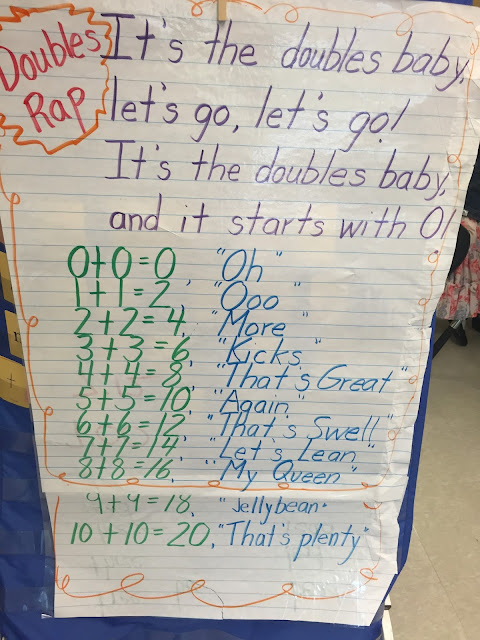 Doubles
Rap
It's the doubles baby,
let's go, let's go!
It's the doubles baby,
and it starts with 0!
0+0=0 "Oh"
1+1=2, "Ooo"
2+2=4, "More"
3+3=6, "Kicks"
4+4=8, "That's Great"
5+5=10, "Again"
6+6=12, "That's Swell"
7+7=14, "Let's Lean"
8+8=16, "My Queen"
9+9=18, "Jellybean"
10+10=20, "That's plenty"